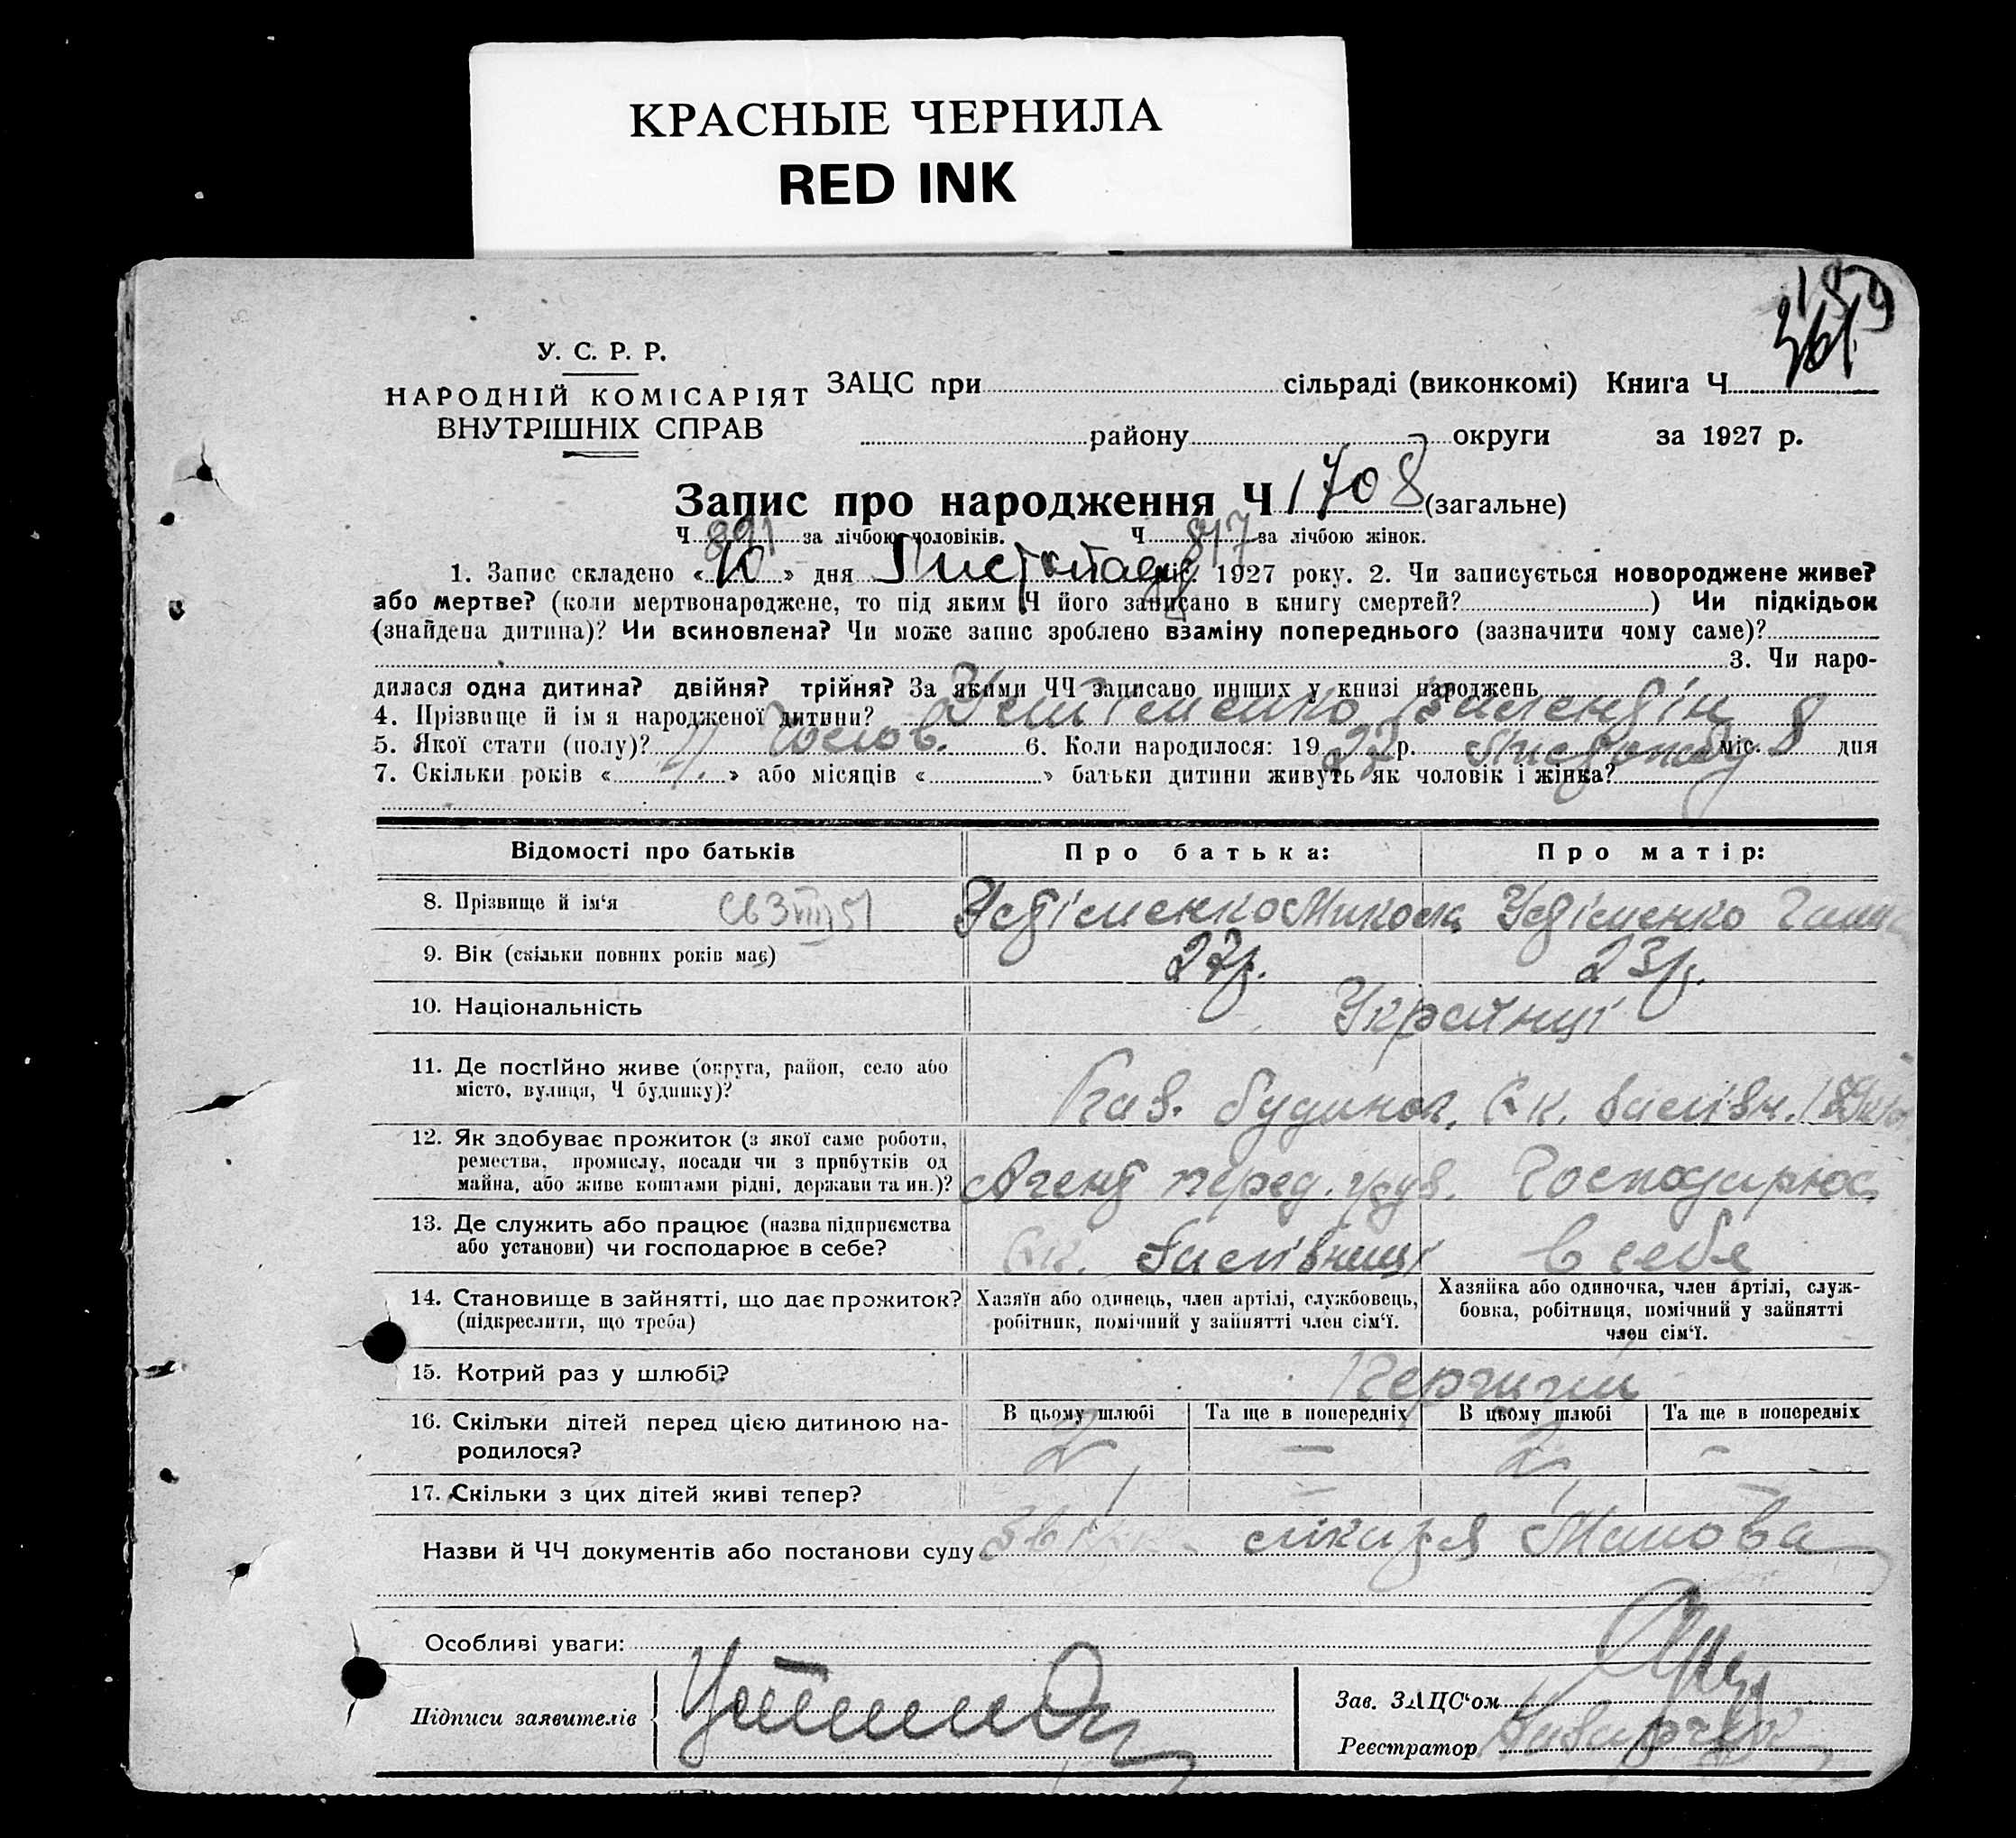 КРАСНЫЕ ЧЕРНИЛА
RED INK
У. С. Р. Р.
НАРОДНІЙ КОМІСАРІЯТ
ВНУТРІШНІХ СПРАВ
ЗАЦС при сільраді (виконкомі) Книга Ч
району округи за 1927 р.
Запис про народження Ч 1708 (загальне)
Ч 891 за лічбою чоловіків. Ч 817 за лічбою жінок.
1. Запис складено « 10 » дня Листопаду міс. 1927 року. 2. Чи записується новороджене живе?
або мертве? (коли мертвонароджене, то під яким Ч його записано в книгу смертей? ) Чи підкідьок
(знайдена дитина)? Чи всиновлена? Чи може запис зроблено взаміну попереднього (зазначити чому саме)?
3. Чи наро-
дилася одна дитина? двійня? трійня? За якими ЧЧ записано инших у книзі народжень
4. Прізвище й ім я народженої дитини? Устіменко Валентін
5. Якої стати (полу)? Чолов. 6. Коли народилося: 19 27 р. Листопаду міс. 8 дня
7. Скільки років « 4 » або місяців « » батьки дитини живуть як чоловік і жінка?
Відомості про батьків
Про батька:
Про матір:
8. Прізвище й ім'я Устіменко Микола Устіменко
9. Вік (скільки повних років має) 27р. 23р.
10. Національність Українці
11. Де постійно живе (округа, район, село або
місто, вулиця, Ч будинку)? будинок,
12. Як здобуває прожиток (з якої саме роботи,
ремества, промислу, посади чи з прибутків од
майна, або живе коштами рідні, держави та ин.)? Агент перед. Господарює
13. Де служить або працює (назва підприємства
або установи) чи господарює в себе? в себе
14. Становище в зайнятті, що дає прожиток?
(підкреслити, що треба)
Хазяїн або одинець, член артілі, службовець,
робітник, помічний у зайнятті член сім'ї.
Хазяйка або одиночка, член артілі, служ-
бовка, робітниця, помічний у зайнятті
член сім'ї.
15. Котрий раз у шлюбі? Перший
16. Скільки дітей перед цією дитиною на-
родилося?
В цьому шлюбі Та ще в попередніх В цьому шлюбі Та ще в попередніх
2 — 2 —
17. Скільки з цих дітей живі тепер? 1 — 1 —
Назви й ЧЧ документів або постанови суду лікаря
Особливі уваги:
Підписи заявителів
Зав. ЗАЦС'ом
Реєстратор